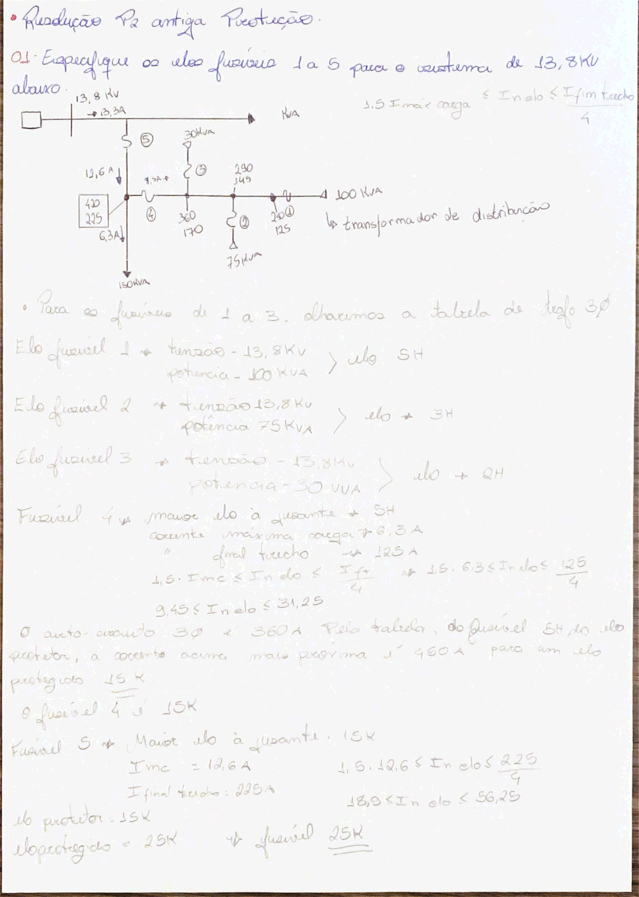 • Resolução P2 antiga Proteção.
01- Especifique os elos fusíveis 1 a 5 para o sistema de 13,8KV
abaixo.
1,5 Imáx carga ≤ In elo ≤ I fim trecho / 4
13,8 KV
→ 13,3A
KVA
⑤
30KVA
③
12,6A
290
145
420
225
④
360
170
②
①
125
100 KVA
↳ transformador de distribuição
6,3A
75KVA
150KVA
• Para os fusíveis de 1 a 3, olharemos a tabela de trafo 3Ø
Elo fusível 1 → tensão - 13,8KV
potência - 100KVA > elo 5H
Elo fusível 2 → tensão 13,8KV
potência 75KVA > elo → 3H
Elo fusível 3 → tensão - 13,8KV
potência - 30 KVA > elo → 2H
Fusível 4 → maior elo à jusante → 5H
corrente máxima carga → 6,3 A
" final trecho → 125A
1,5. Imc ≤ In elo ≤ Ift / 4 → 1,5. 6,3 ≤ In elo ≤ 125 / 4
9,45 ≤ In elo ≤ 31,25
O curto-circuito 3Ø é 360A. Pela tabela, do fusível 5H, do elo
protetor, a corrente acima mais próxima é 450A para um elo
protegido 15K
O fusível 4 é 15K
Fusível 5 → Maior elo à jusante. 15K
Imc = 12,6A
1,5. 12,6 ≤ In elo ≤ 225 / 4
I final trecho = 225A
18,9 ≤ In elo ≤ 56,25
elo protetor = 15K
elo protegido = 25K → fusível 25K